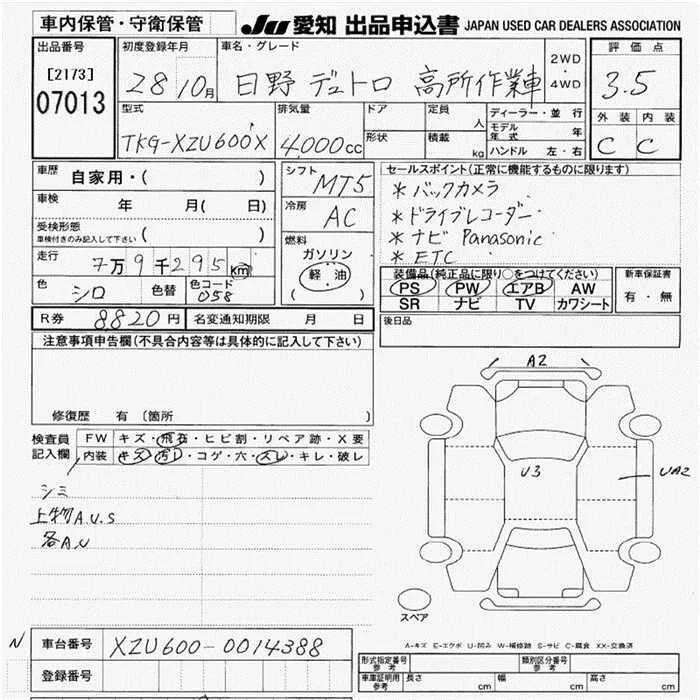 車内保管・守衛保管
JU 愛知 出品申込書 JAPAN USED CAR DEALERS ASSOCIATION
出品番号
[2173]
07013
初度登録年月
28 10月
車名・グレード
日野 デュトロ 高所作業車
2WD
・
4WD
評価点
3.5
外装 内装
C C
型式
TKG-XZU600X
排気量
4,000cc
ドア
形状
定員 人
積載 kg
ディーラー・並行
モデル年式 年
ハンドル 左・右
車歴 自家用・( )
車検 年 月( 日)
受検形態
車検付きのみ記入して下さい ( )
走行 7万9千295km
色 シロ 色替 色コード 058
シフト MT5
冷房 AC
燃料
ガソリン
軽油
( )
セールスポイント(正常に機能するものに限ります)
*バックカメラ
*ドライブレコーダー
*ナビ Panasonic
*ETC
装備品(純正品に限り○をつけてください)
PS PW エアB AW
SR ナビ TV カワシート
新車保証書
有・無
R券 8,820円 名変通知期限 月 日
後日品
注意事項申告欄(不具合内容等は具体的に記入して下さい)
修復歴 有 〔箇所 〕
検査員記入欄
FW キズ・飛石・ヒビ割・リペア跡・X要
内装 キズ・汚レ・コゲ・穴・スレ・キレ・破レ
シミ
上物A.U.S
各A.U
A2
U3
UA2
スペア
A-キズ E-エクボ U-凹み W-補修跡 S-サビ C-腐食 XX-交換済
N
車台番号 XZU600-0014388
登録番号
形式指定番号参考
類別区分番号参考
車庫証明用参考 長さ cm 幅 cm 高さ cm